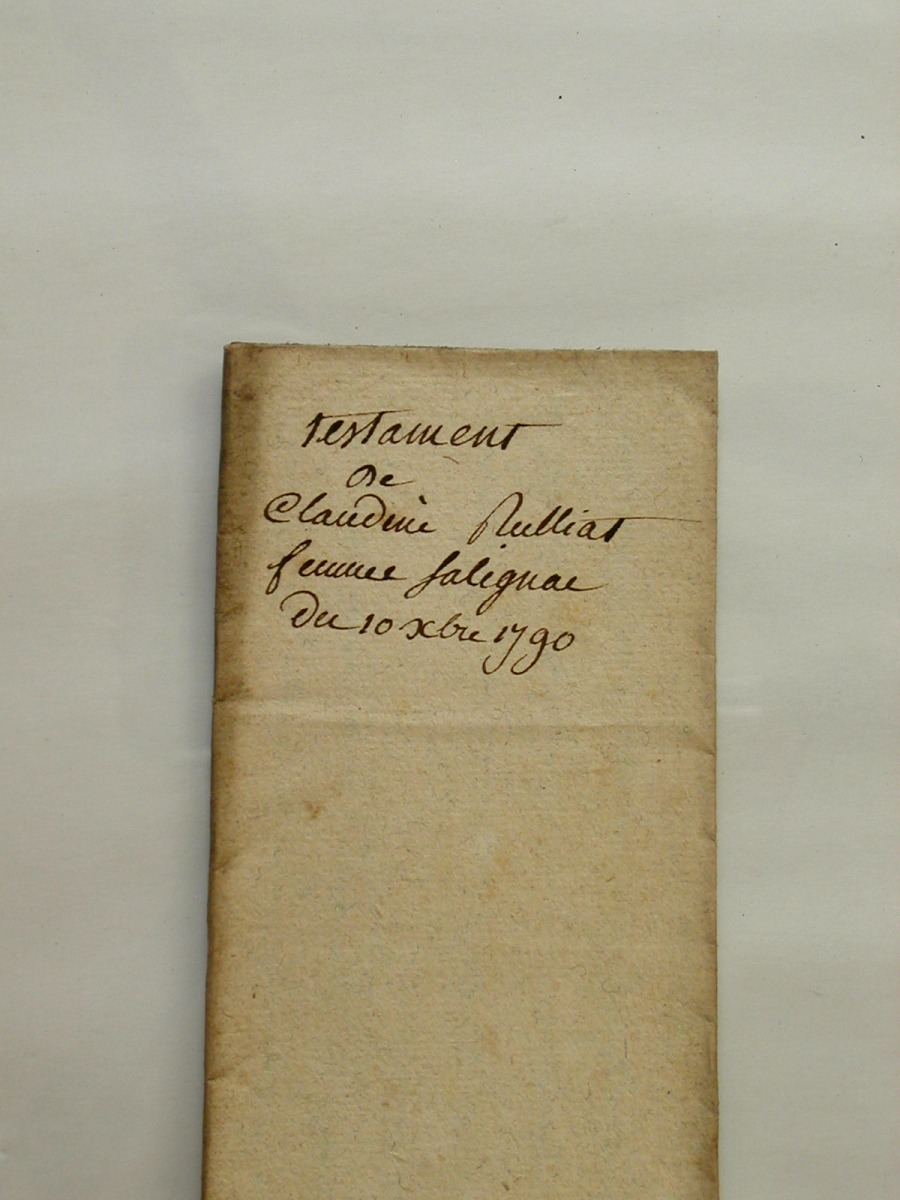 testament
de
Claudine Rulliat
femme Salignac
Du 10 xbre 1790